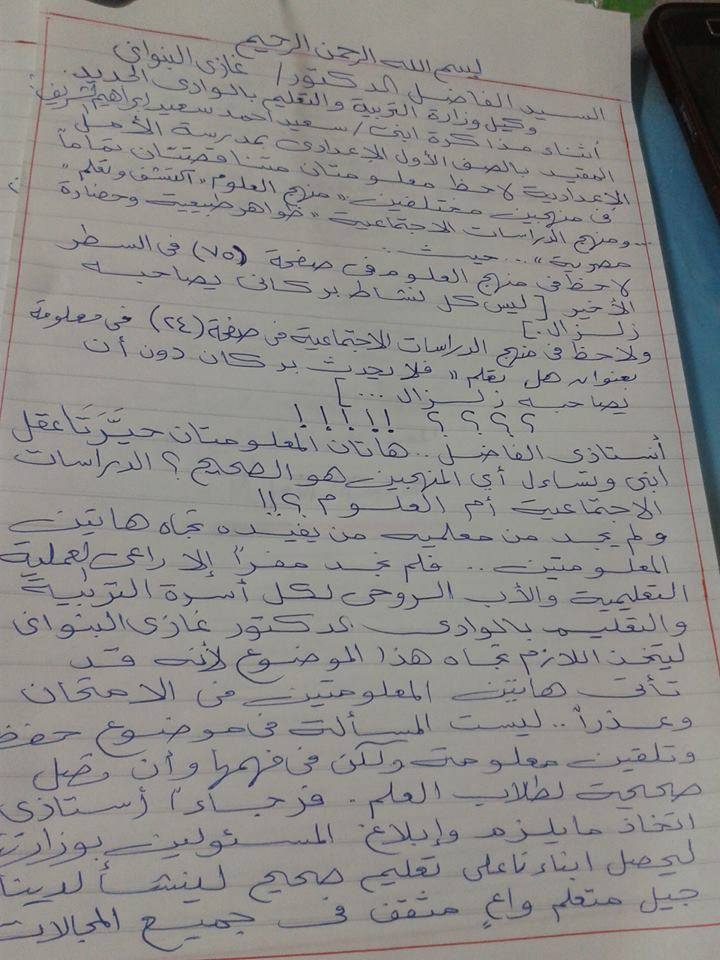 بسم الله الرحمن الرحيم
السيد الفاضل الدكتور/ غازى البنوانى
وكيل وزارة التربية والتعليم بالوادى الجديد
أثناء مذاكرة ابنى/ سعيد احمد سعيد ابراهيم شريف
المقيد بالصف الأول الإعدادى بمدرسة الأمل
الإعدادية لاحظ معلومتان متناقضتان تماماً
فى منهجين مختلفين "منهج العلوم "اكتشف وتعلم"
ومنهج الدراسات الاجتماعية "ظواهر طبيعية وحضارة
مصرية"... حيث..
لاحظ فى منهج العلوم فى صفحة (٧٥) فى السطر
الأخير [ليس كل نشاط بركانى يصاحبه
زلزال.]
ولاحظ فى منهج الدراسات الاجتماعية فى صفة (٢٤) فى معلومة
بعنوان هل تعلم "فلا يحدث بركان دون أن
يصاحبه زلزال...]
؟؟؟؟ !!!!!
أستاذى الفاضل.. هاتان المعلومتان حيَّرَتَا عقل
ابنى وتساءل أي المنهجين هو الصحيح؟ الدراسات
الاجتماعية أم العلوم؟!!
ولم يجد من معلميه من يفيده تجاه هاتين
المعلومتين.. فلم نجد مفراً إلا راعى العملية
التعليمية والأب الروحى لكل أسرة التربية
والتعليم بالوادى الدكتور غازى البنوانى
ليتخذ اللازم تجاه هذا الموضوع لأنه قد
تأتى هاتين المعلومتين فى الامتحان
وعذراً.. ليست المسألة فى موضوع حفظ
وتلقين معلومة ولكن فى فهمها وأن تصل
صحيحة لطلاب العلم. فرجاءاً أستاذى
اتخاذ مايلزم وإبلاغ المسئولين بوزارة
ليحصل ابناءنا على تعليم صحيح لينشأ لدينا
جيل متعلم واعٍ مثقف فى جميع المجالات